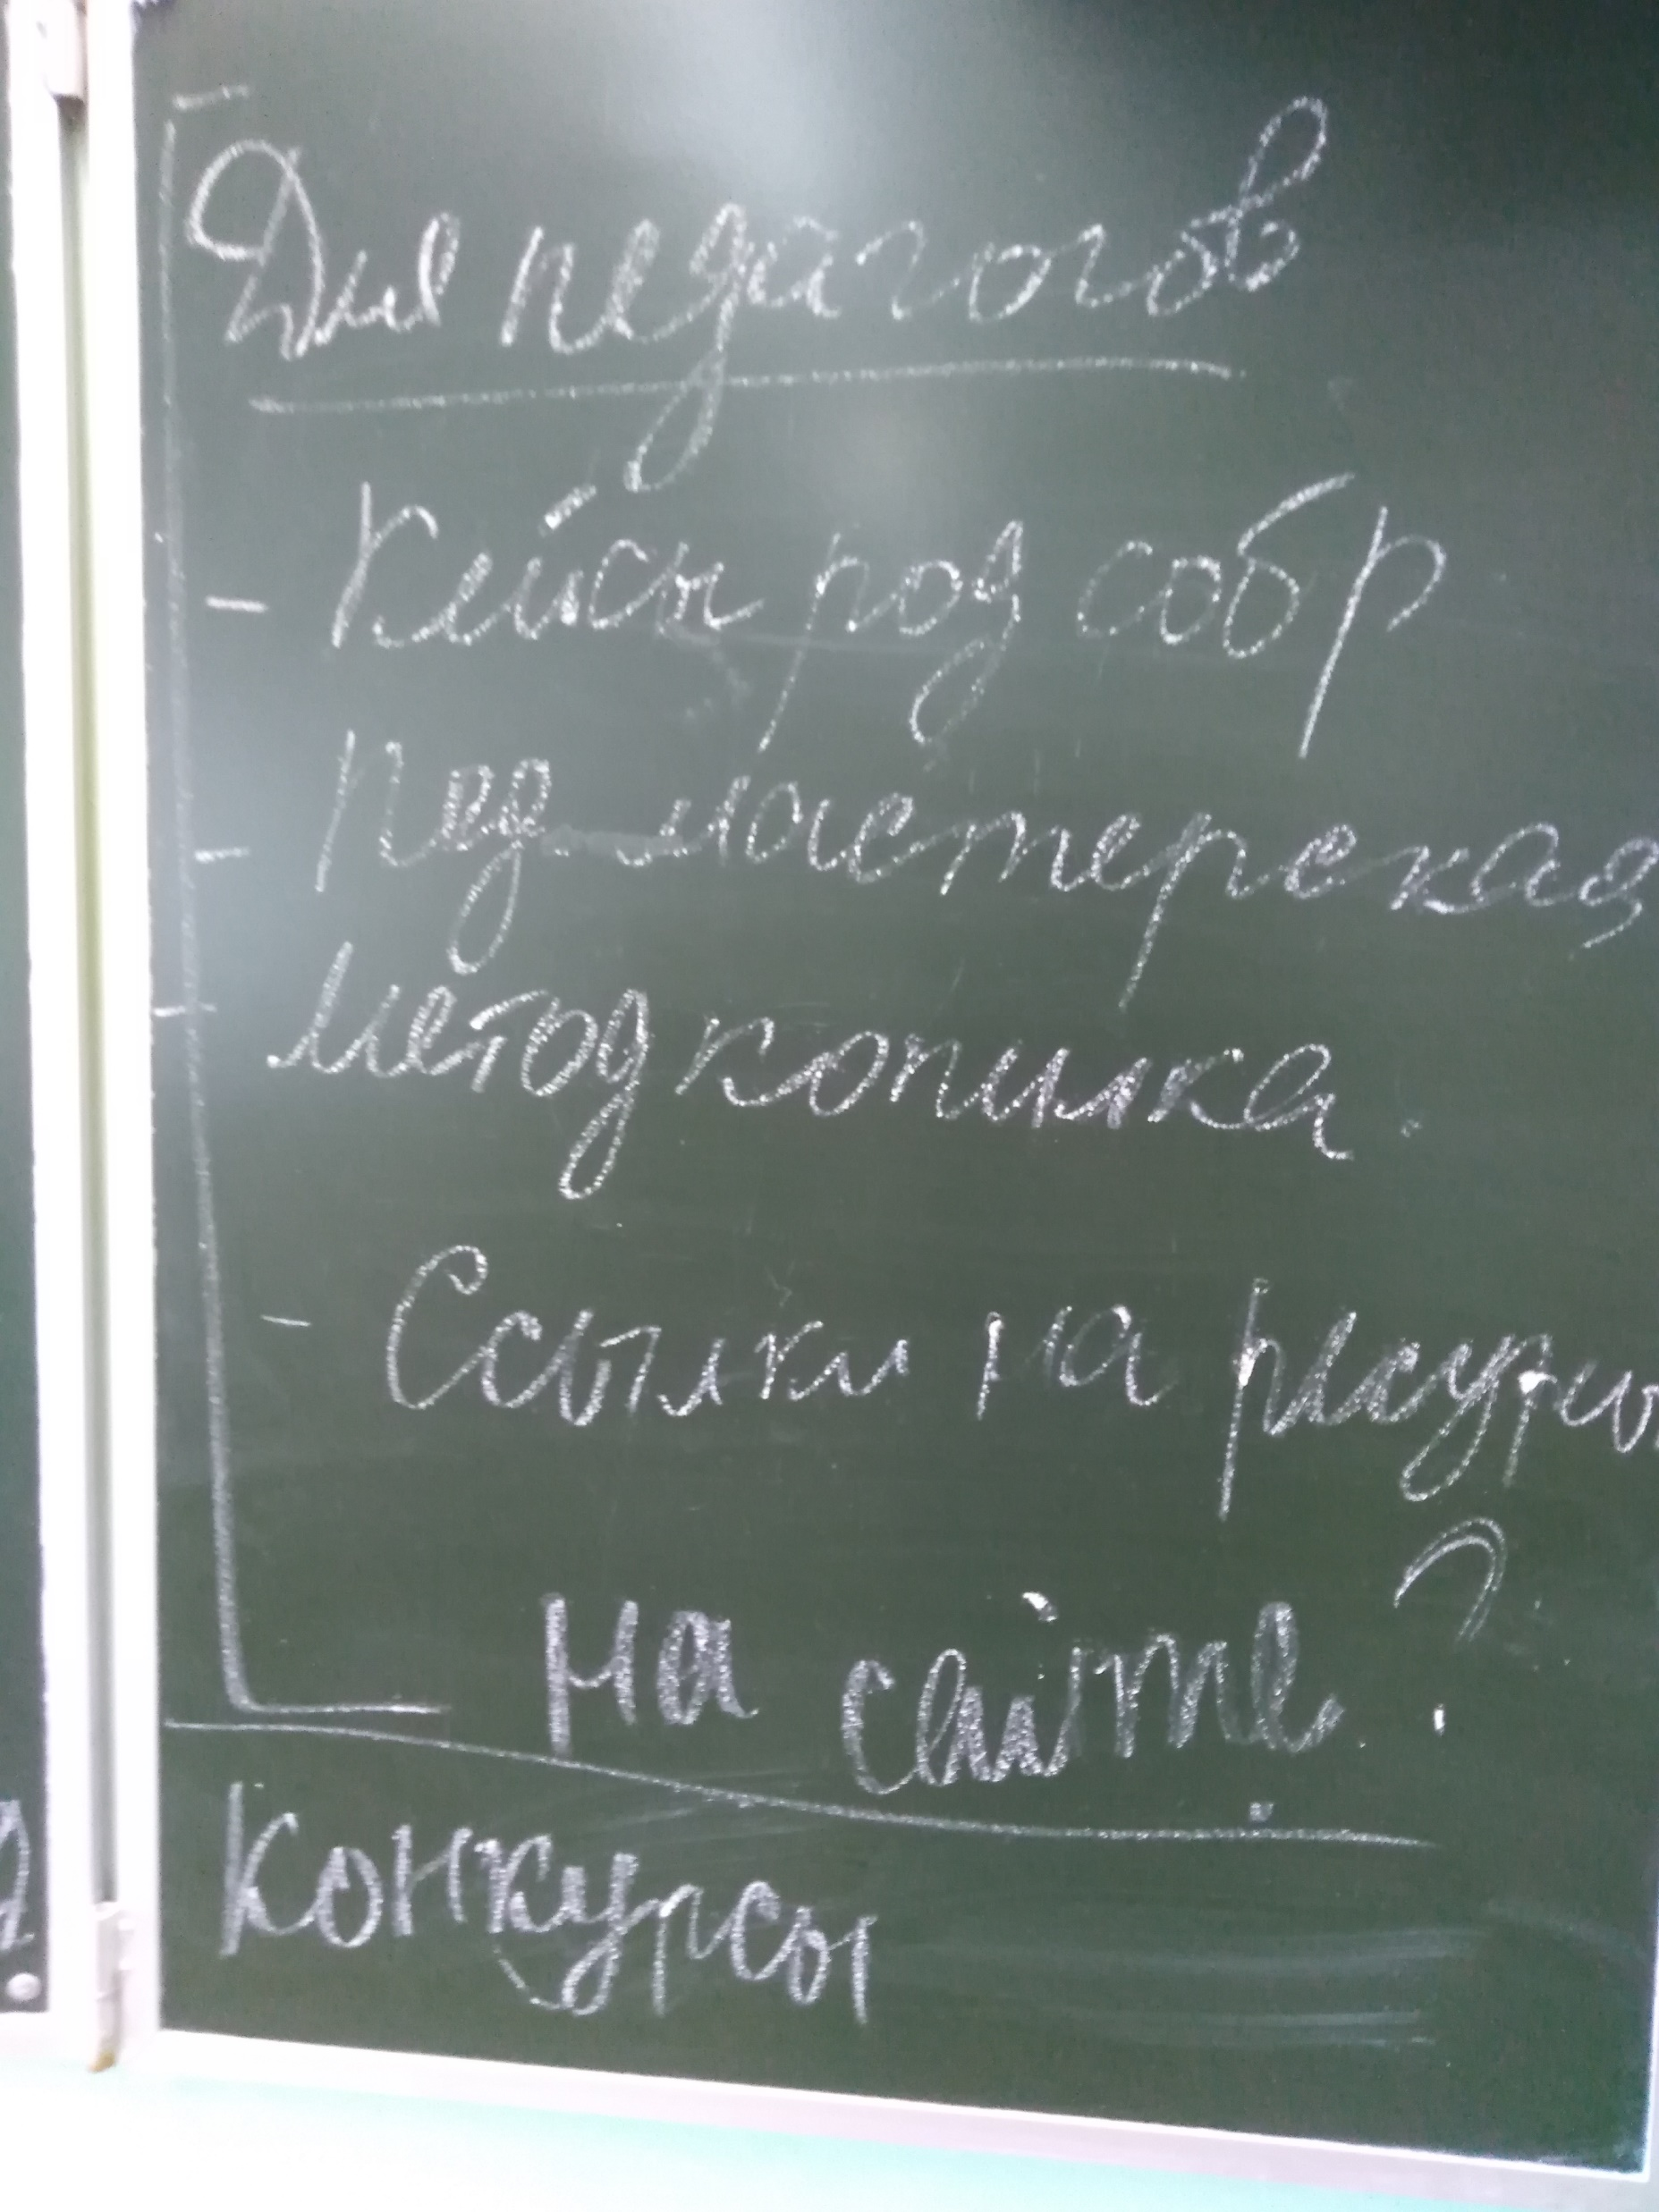 Для педагогов
- Кейсы род собр
- Пед мастерская
- метод копилка.
- Ссылки на ресурсы
на сайте?
Конкурсы